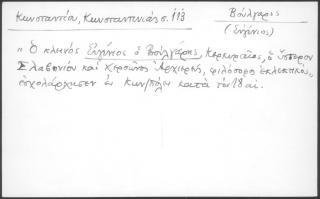 Κωνσταντίου, Κωνσταντινιάς σ. 113
Βούλγαρις
(Εὐγένιος)
"Ὁ κλεινὸς Εὐγένιος ὁ Βούλγαρις, Κερκυραῖος, ὁ ὕστερον
Σλαβωνίου καὶ Χερσῶνος Ἀρχιερεύς, φιλόσοφος ἐκλεκτικὸς,
ἐσχολάρχησεν ἐν Κων/πόλει κατὰ τὸν 18 αἰ.